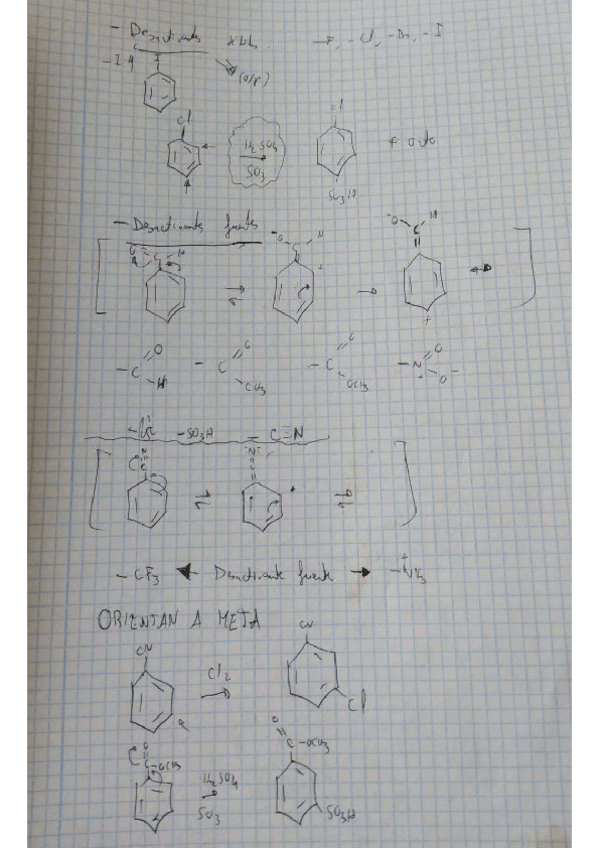 - Desactivante débil. → -Cl, -Br, -I
-I (o/p)
I
Cl
H₂SO₄
SO₃
Cl
SO₃H
+ orto
- Desactivante fuerte
O C H
⁻O C H
+
⁻O C H
+
-C O H
-C O CH₃
-C O OCH₃
-N⁺ O O⁻
-SO₃H
-C≡N
N C
N C
+
-CF₃ ← Desactivante fuerte → -⁺NH₃
ORIENTAN A META
CN
Cl₂
CN
Cl
O C-OCH₃
H₂SO₄
SO₃
O C-OCH₃
SO₃H